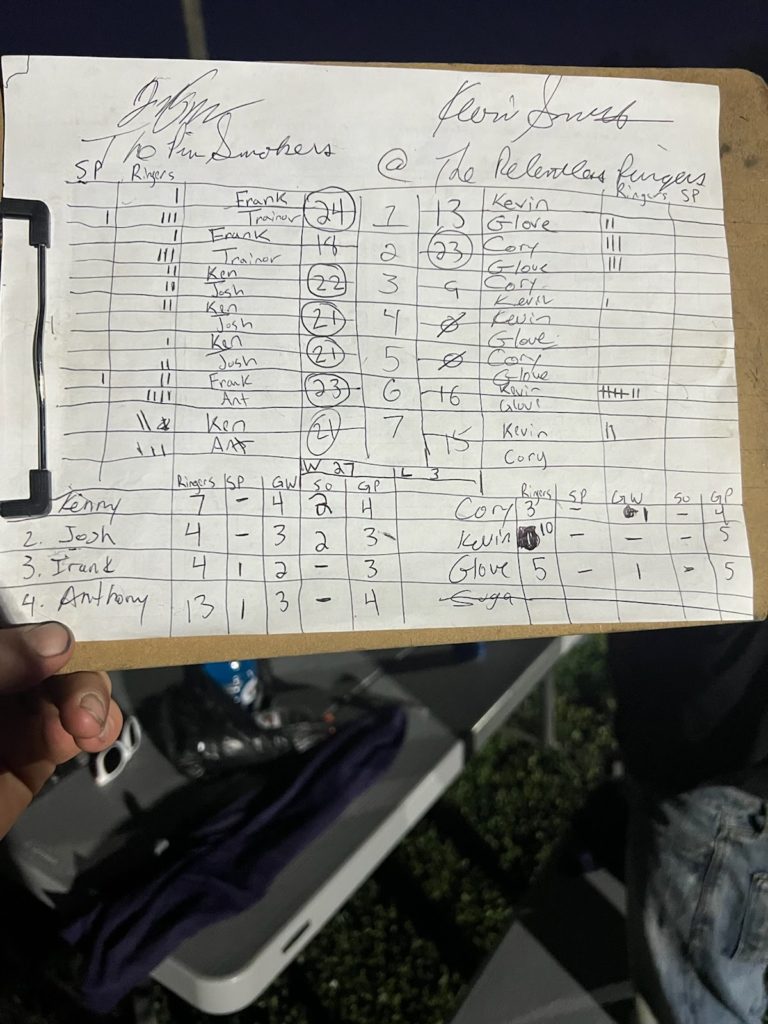 Kevin
Tho Pin Smokers @ The Relentless Ringers
SP Ringers Ringers SP
| Frank 24 1 13 Kevin
| ||| Trainor Glove ||
| Frank 18 2 23 Cory ||||
||| Trainor Glove |||
|| Ken 22 3 9 Cory
|| Josh Kevin |
|| Ken 21 4 Ø Kevin
Josh Glove
| Ken 21 5 Ø Cory
|| Josh Glove
| || Frank 23 6 16 Kevin
|||| Ant Glove
|| Ken 21 7 15 Kevin ||
||| Ant Cory
W 27 L 3
Ringers SP GW SO GP Ringers SP GW SO GP
Kenny 7 - 4 2 4 Cory 3 - 1 - 4
2. Josh 4 - 3 2 3 Kevin 10 - - - 5
3. Frank 4 1 2 - 3 Glove 5 - 1 - 5
4. Anthony 13 1 3 - 4 Suga